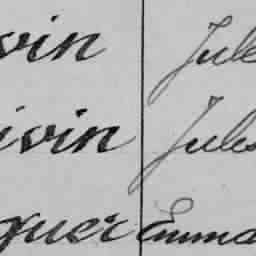 vin Jule
ivin Jules
quer Emma